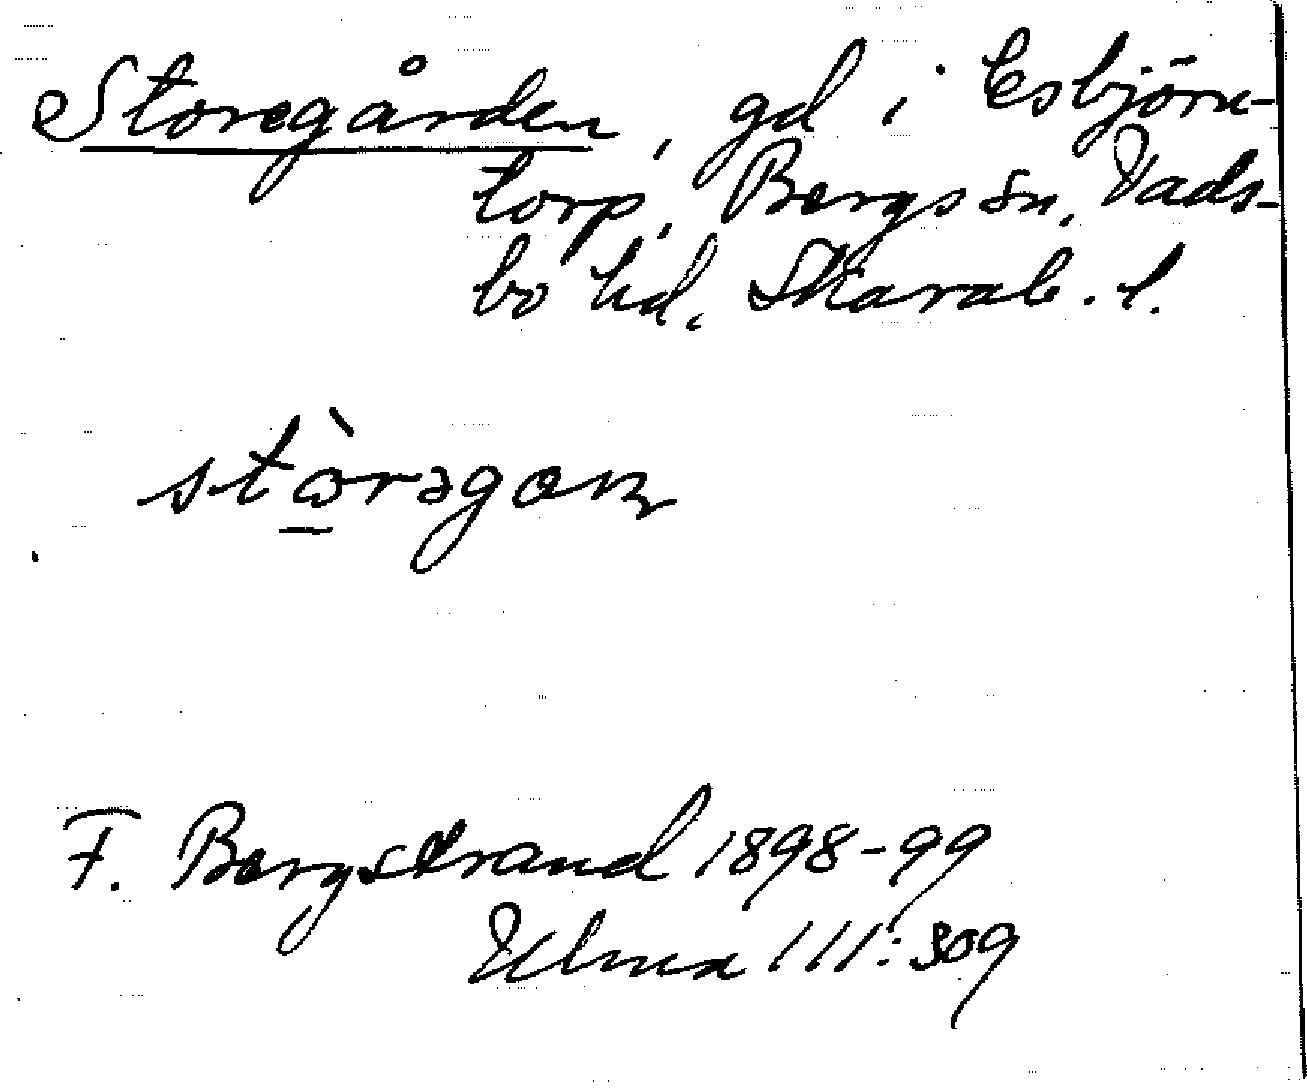 Storegården, gd i Esbjörn-
torp, Bergs sn, Vads-
bo hd, Skarab. l.
stɷ̀rəgɑɳ
F. Bergstrand 1898-99
Ulma 111:309